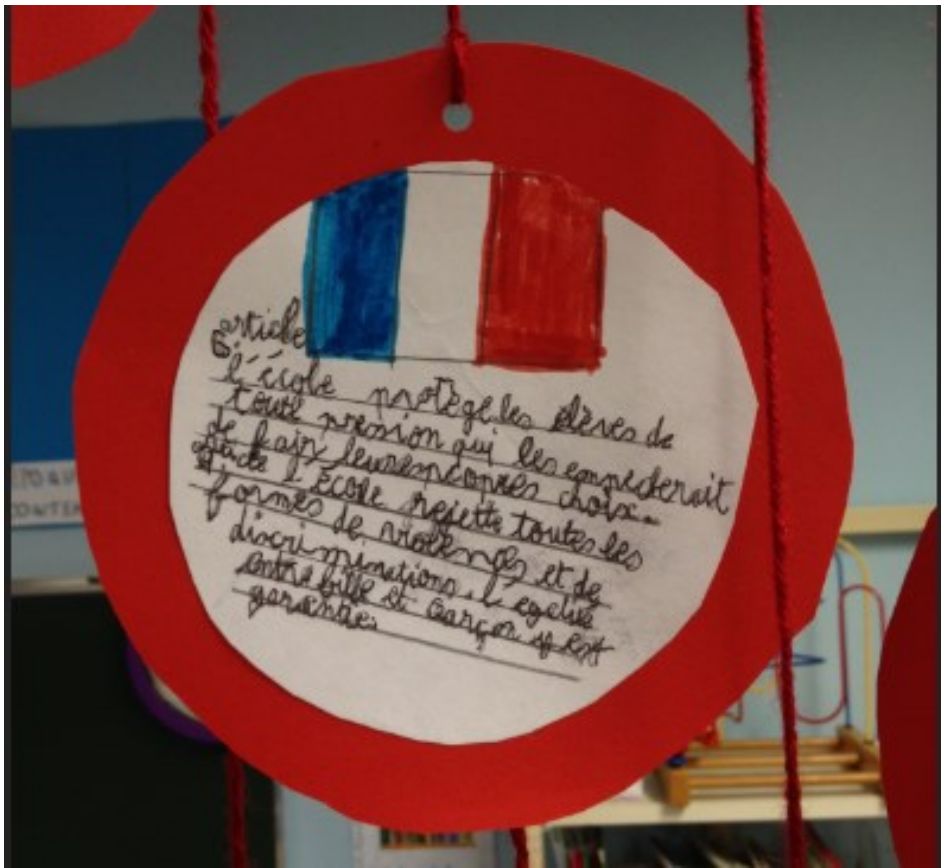 article
6
l'école protège les élèves de
toute pression qui les empecherait
de fair leurs propres choix.
article
l'école rejette toutes les
formes de violences et de
discriminations, l'égalité
entre fille et garçon y est
garantie.